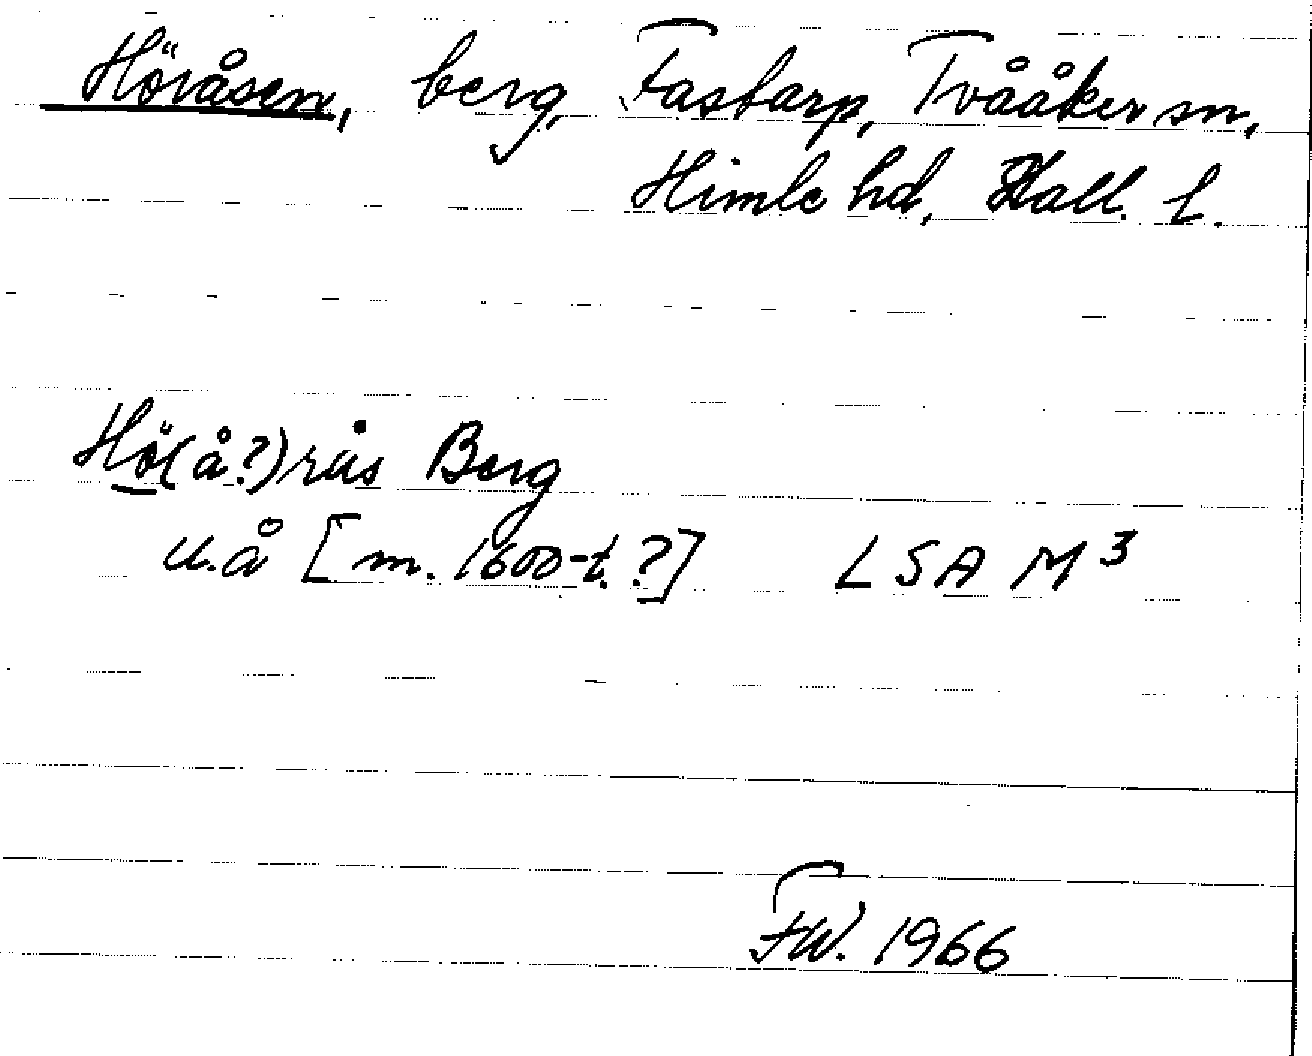 Höråsen, berg, Fastarp, Tvååker sn,
Himle hd, Hall. l.
Hö(å?)rås Berg
u.å [m. 1600-t.?] LSA M³
FW. 1966